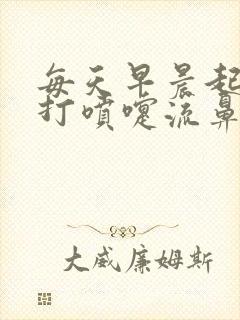 每天早晨起
打噴嚏流鼻
大威廉姆斯